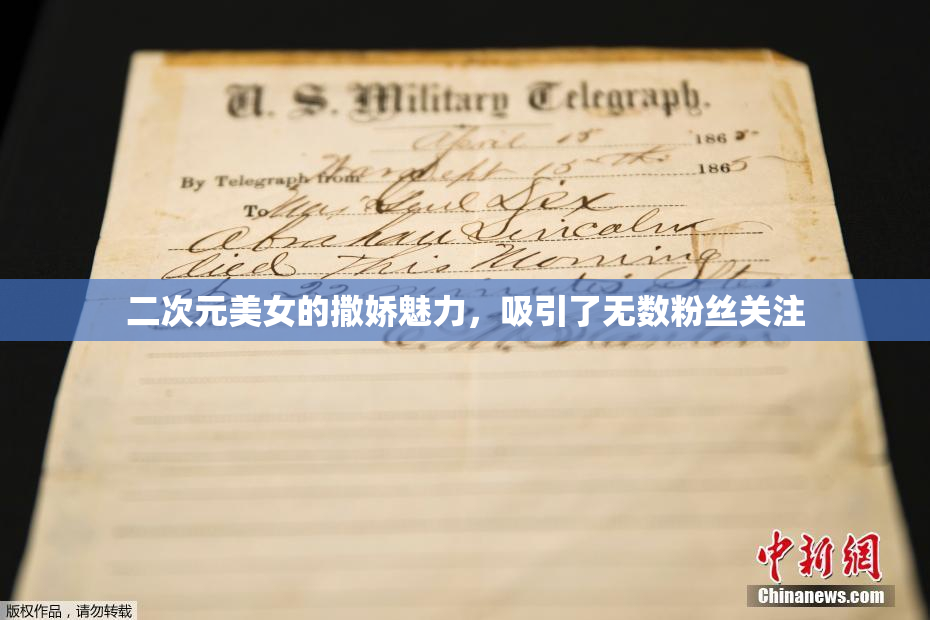 U. S. Military Telegraph.
April 15 1865
By Telegraph from War Dept 15th 1865
To Maj Genl Dix
Abraham Lincoln
died This Morning
at 22 minutes after
二次元美女的撒娇魅力，吸引了无数粉丝关注
E. M. Stanton
中新網
Chinanews.com
版权作品，请勿转载